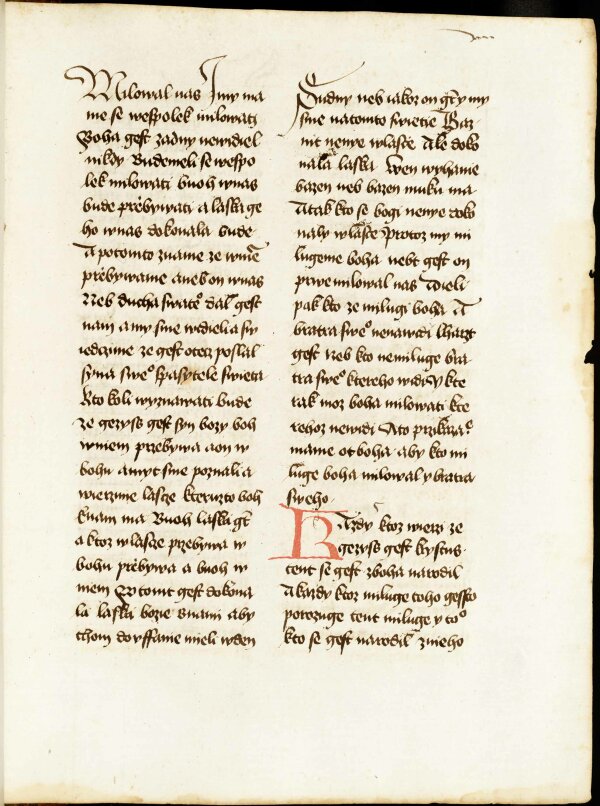 Milowal nas I my ma
me se wespolek milowati
Boha gest zadny newidiel
nikdy Budemeli se wespo
lek milowati buoh wnas
bude přebywati a laska ge
ho wnas dokonala bude
A potomto zname ze wniē
přebywame aneb on wnas
Neb ducha swateº dal gest
nam a my sme widieli a sw
iedczime ze gest otecz poslal
syna sweº spasytele swieta
kto koli wyznawati bude
ze gezyss gest syn bozy boh
wniem przebywa a on w
bohu a my t sme poznali a
wierzime lascze kteruzto boh
knam ma Buoh laska gt
a ktoz wlascze przebywa w
bohu přebywa a buoh w
niem W tomt gest dokona
la laska bozie snami aby
chom dowffanie mieli wden
Sudny neb iakoz on gt y my
sme natomto swietie Baz
nie nenye wlasce Ale doko
nala laska wen wyhanie
bazen neb bazen muku ma
A tak kto se bogi nenye doko
naly wlasce Protoz my mi
lugeme boha nebt gest on
prwe milowal nas Dieli
pak kto ze milugi boha A
bratra sweº nenawidi lharz
gest Neb kto nemiluge bra
tra sweº ktereho widi y kte
rak moz boha milowati kte
rehoz newidi A to přikazaº
mame ot boha aby kto mi
luge boha milowal y bratra
sweho
Kazdy ktoz wierzi ze
gezyss gest krystus
tent se gest zboha narodil
A kazdy ktoz miluge toho gessto
porozuge tent miluge y toº
kto se gest narodil znieho